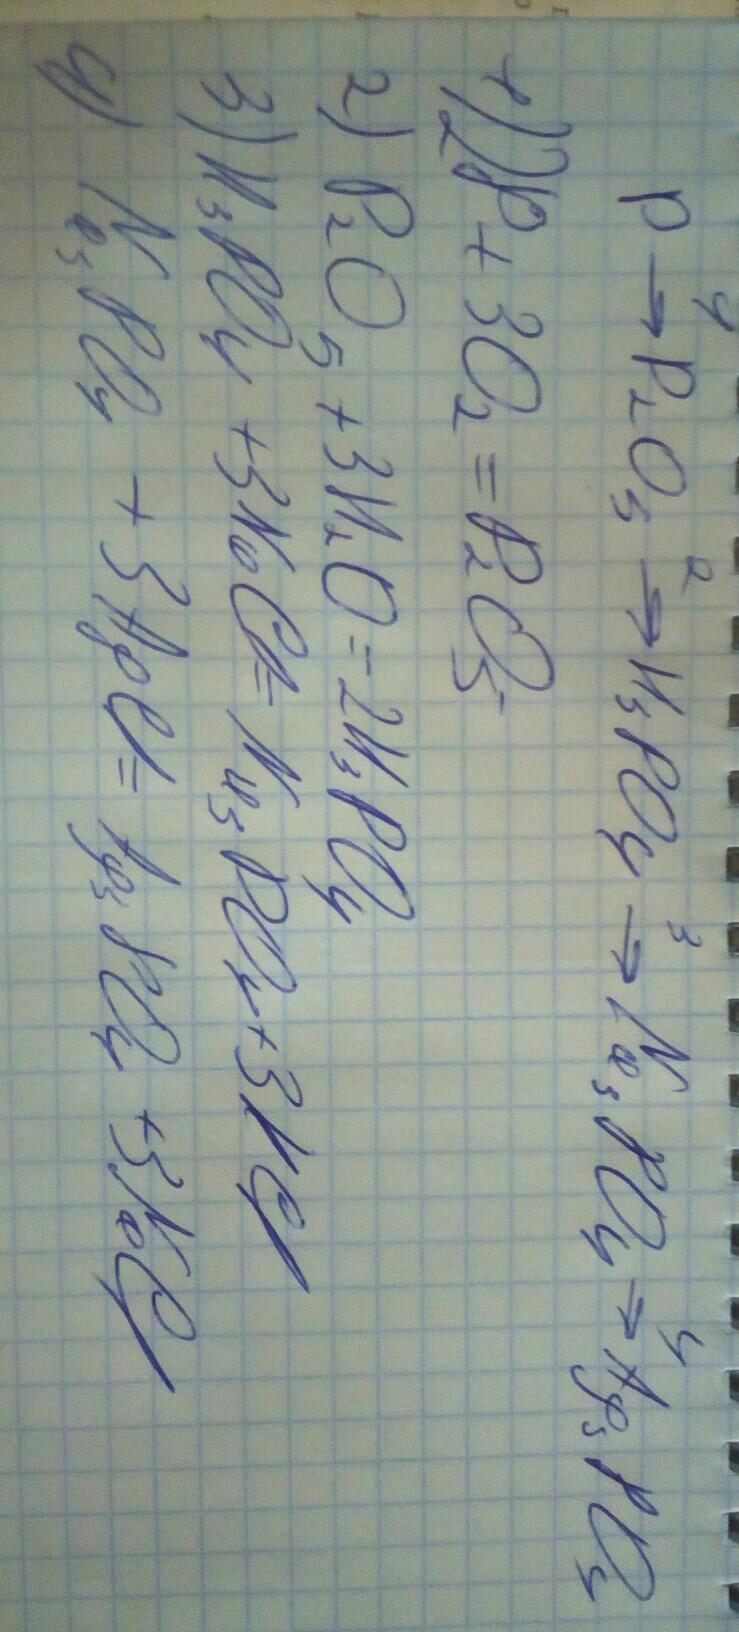 P →¹ P₂O₅ →² H₃PO₄ →³ Na₃PO₄ →⁴ Ag₃PO₄
1) 2P + 3O₂ = P₂O₅
2) P₂O₅ + 3H₂O = 2H₃PO₄
3) H₃PO₄ + 3NaCl = Na₃PO₄ + 3HCl
4) Na₃PO₄ + 3AgCl = Ag₃PO₄ + 3NaCl